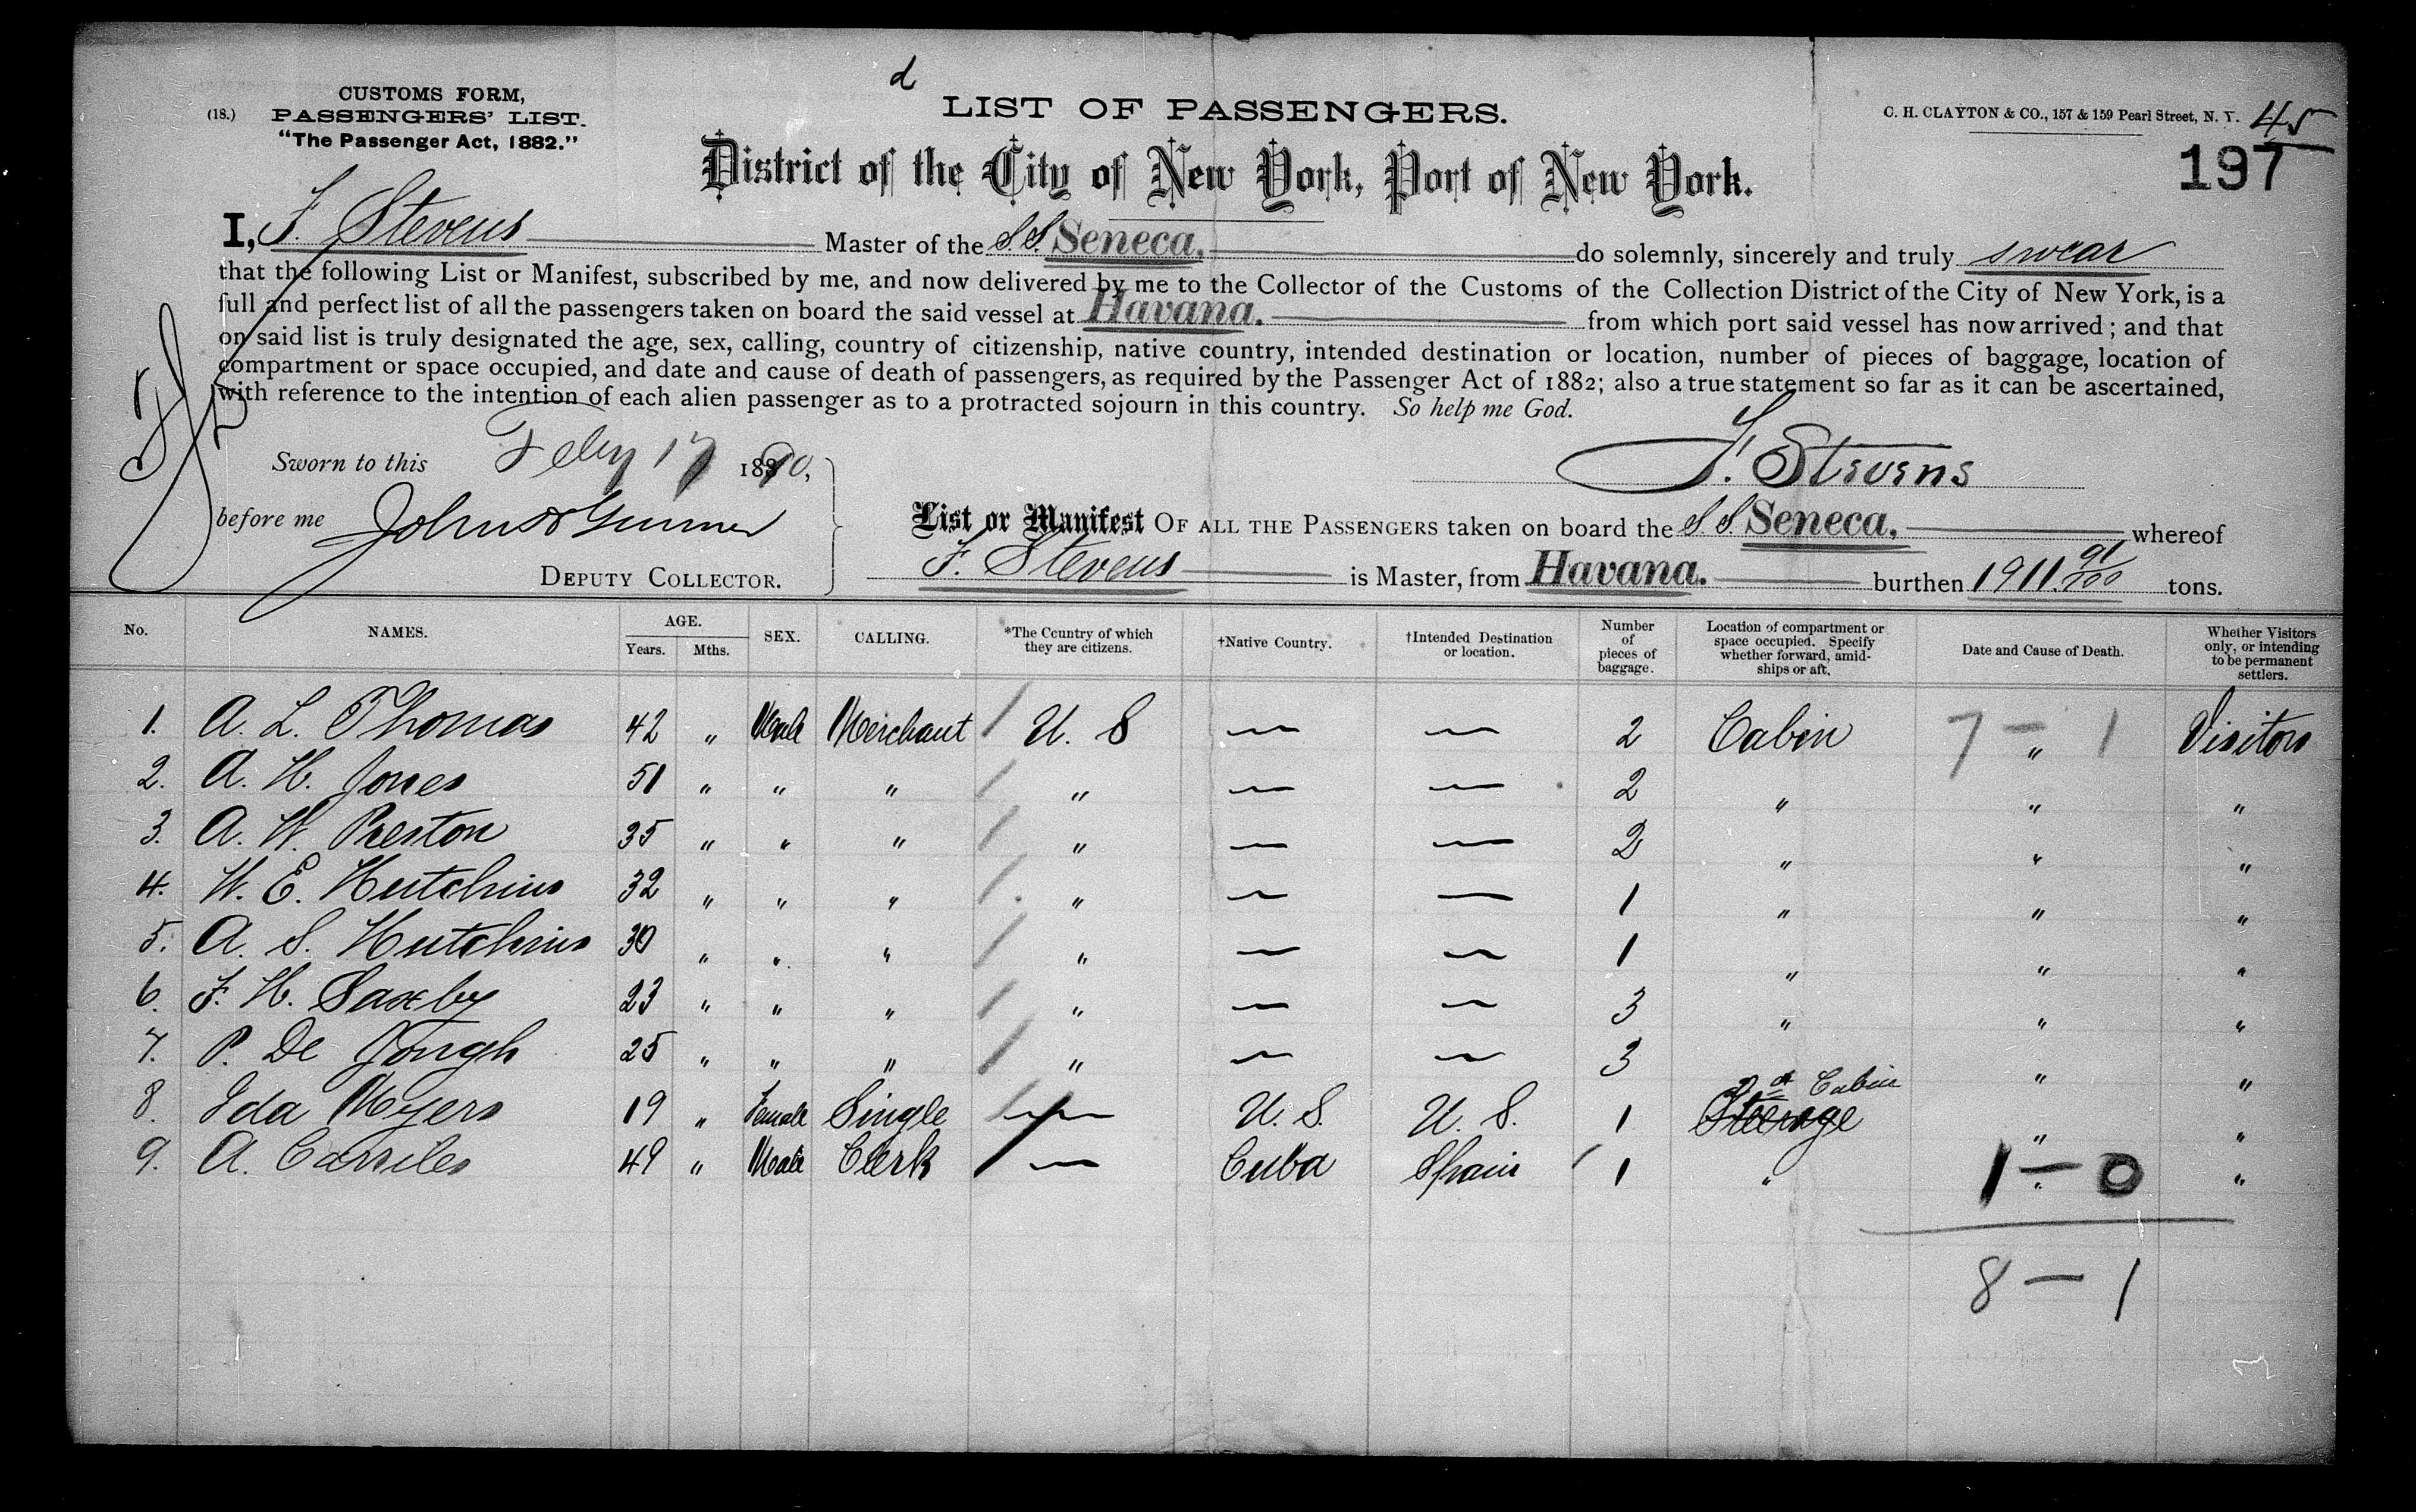 d
CUSTOMS FORM,
(18.) PASSENGERS' LIST.
"The Passenger Act, 1882."
LIST OF PASSENGERS.
C. H. CLAYTON & CO., 157 & 159 Pearl Street, N. Y. 45
197
District of the City of New York, Port of New York.
I, F. Stevens Master of the S.S. Seneca. do solemnly, sincerely and truly swear
that the following List or Manifest, subscribed by me, and now delivered by me to the Collector of the Customs of the Collection District of the City of New York, is a
full and perfect list of all the passengers taken on board the said vessel at Havana. from which port said vessel has now arrived; and that
on said list is truly designated the age, sex, calling, country of citizenship, native country, intended destination or location, number of pieces of baggage, location of
compartment or space occupied, and date and cause of death of passengers, as required by the Passenger Act of 1882; also a true statement so far as it can be ascertained,
with reference to the intention of each alien passenger as to a protracted sojourn in this country. So help me God.
Sworn to this Feby 17 1890,
F. Stevens
before me
List or Manifest OF ALL THE PASSENGERS taken on board the S.S. Seneca. whereof
DEPUTY COLLECTOR.
F. Stevens is Master, from Havana. burthen 1911. 91/100 tons.
No. NAMES. AGE. Years. Mths. SEX. CALLING. *The Country of which they are citizens. †Native Country. †Intended Destination or location. Number of pieces of baggage. Location of compartment or space occupied. Specify whether forward, amidships or aft. Date and Cause of Death. Whether Visitors only, or intending to be permanent settlers.
1. A. L. Thomas 42 " Male Merchant / U. S — — 2 Cabin 7 — 1 " Visitors
2. A. H. Jones 51 " " " / " — — 2 " " "
3. A. W. Preston 35 " " " / " — — 2 " " "
4. W. E. Hutchins 32 " " " / " — — 1 " " "
5. A. S. Hutchins 30 " " " / " — — 1 " " "
6. F. H. Saxby 23 " " " / " — — 3 " " "
7. P. De Jongh 25 " " " / " — — 3 " " "
8. Ida Myers 19 " Female Single / — U. S. U. S. 1 Steerage 2d Cabin " "
9. A. Carriles 49 " Male Clerk / — Cuba Spain / 1 " " "
1 — 0
8 — 1